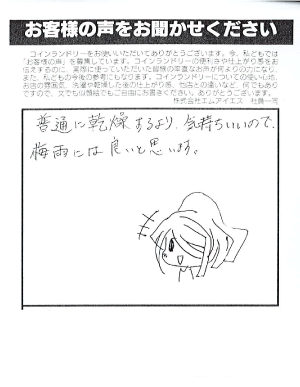 お客様の声をお聞かせください
コインランドリーをお使いいただいてありがとうございます。今、私どもでは
「お客様の声」を募集しています。コインランドリーの便利さや仕上がり感をお
伝えするのに、実際に使っていただいた皆様の率直なお声が何よりの力になりし、
また、私どもの今後の参考にもなります。コインランドリーについての使い心地、
お店の雰囲気、洗濯や乾燥した後の仕上がり感、他店との違いなど、何でもあり
ですので、文でも似顔絵でもご自由にお書きください。ありがとうございます。
株式会社エムアイエス 社員一同
普通に乾燥するより、気持ちいいので、
梅雨には良いと思います。